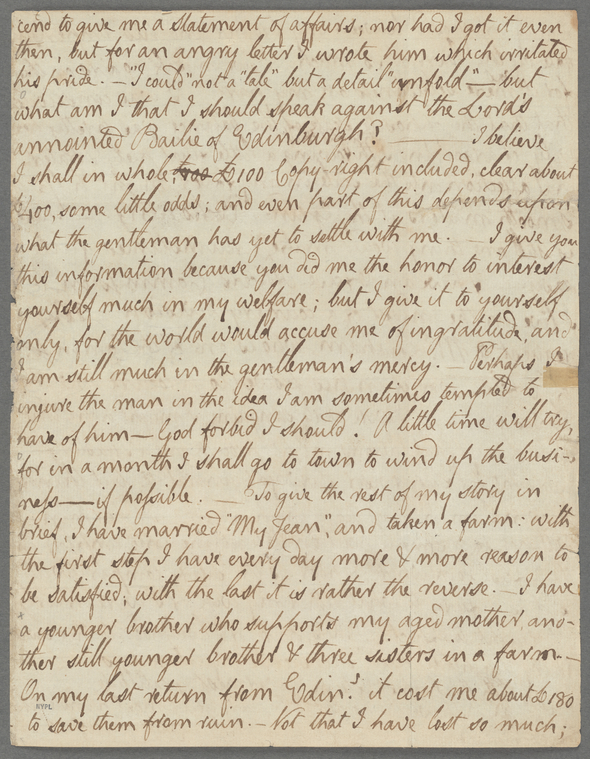 cend to give me a statement of affairs; nor had I got it even
then, but for an angry letter I wrote him which irritated
his pride. — "I could" not a "tale" but a detail "unfold" — but
what am I that I should speak against the Lord's
annointed Bailie of Edinburgh? — I believe
I shall in whole, £100 Copy-right included, clear about
£400, some little odds; and even part of this depends upon
what the gentleman has yet to settle with me. — I give you
this information because you did me the honor to interest
yourself much in my welfare; but I give it to yourself
only, for the world would accuse me of ingratitude, and
I am still much in the gentleman's mercy. — Perhaps I
injure the man in the idea I am sometimes tempted to
have of him — God forbid I should! A little time will try,
for in a month I shall go to town to wind up the busi-
ness — if possible. — To give the rest of my story in
brief, I have married "My Jean", and taken a farm: with
the first step I have every day more & more reason to
be satisfied; with the last it is rather the reverse. — I have
a younger brother who supports my aged mother, ano-
ther still younger brother & three sisters in a farm. —
On my last return from Edinr. it cost me about £180
to save them from ruin. — Not that I have lost so much;
NYPL